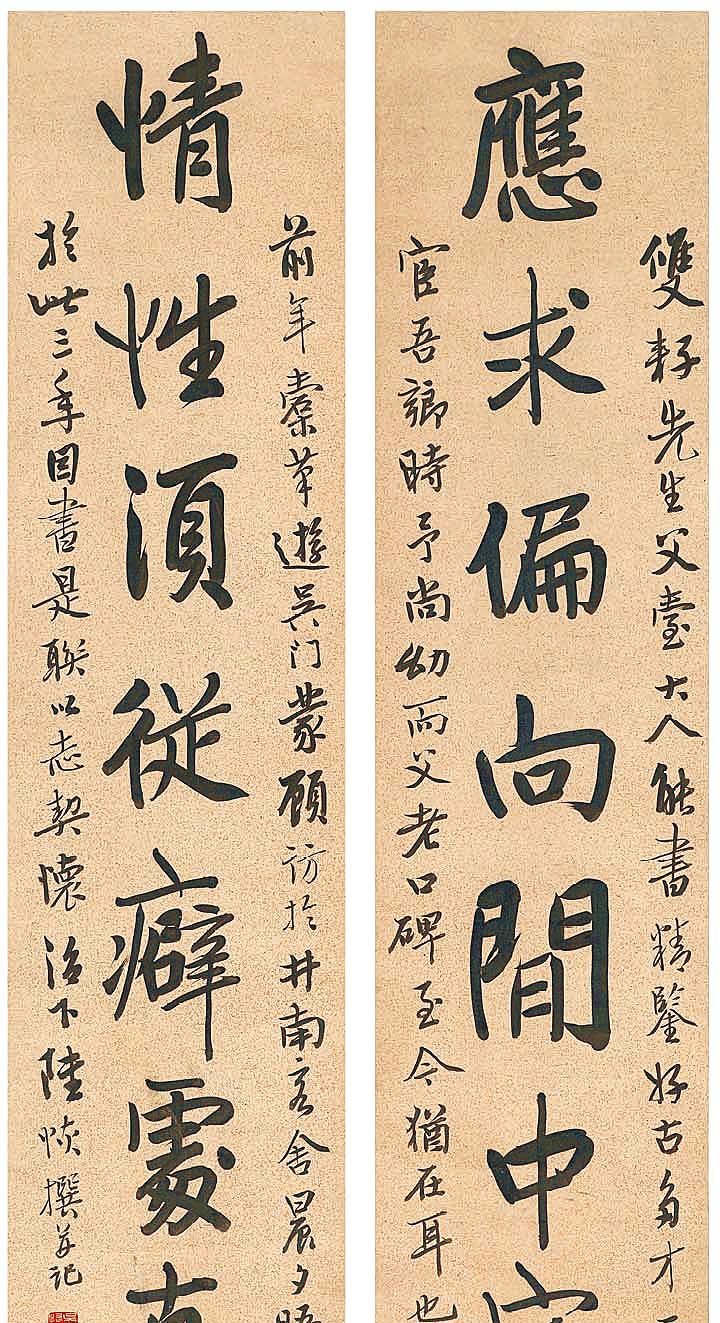 雙籽先生父臺大人能書精鑒好古多才
應求偏向閒中
宦吾鄉時予尚幼而父老口碑至今猶在耳也
前年橐筆遊吳门蒙顧訪於井南客舍晨夕晤
情性須從癖處
於此三年因書是聯以志契懷治下陸恢撰并记